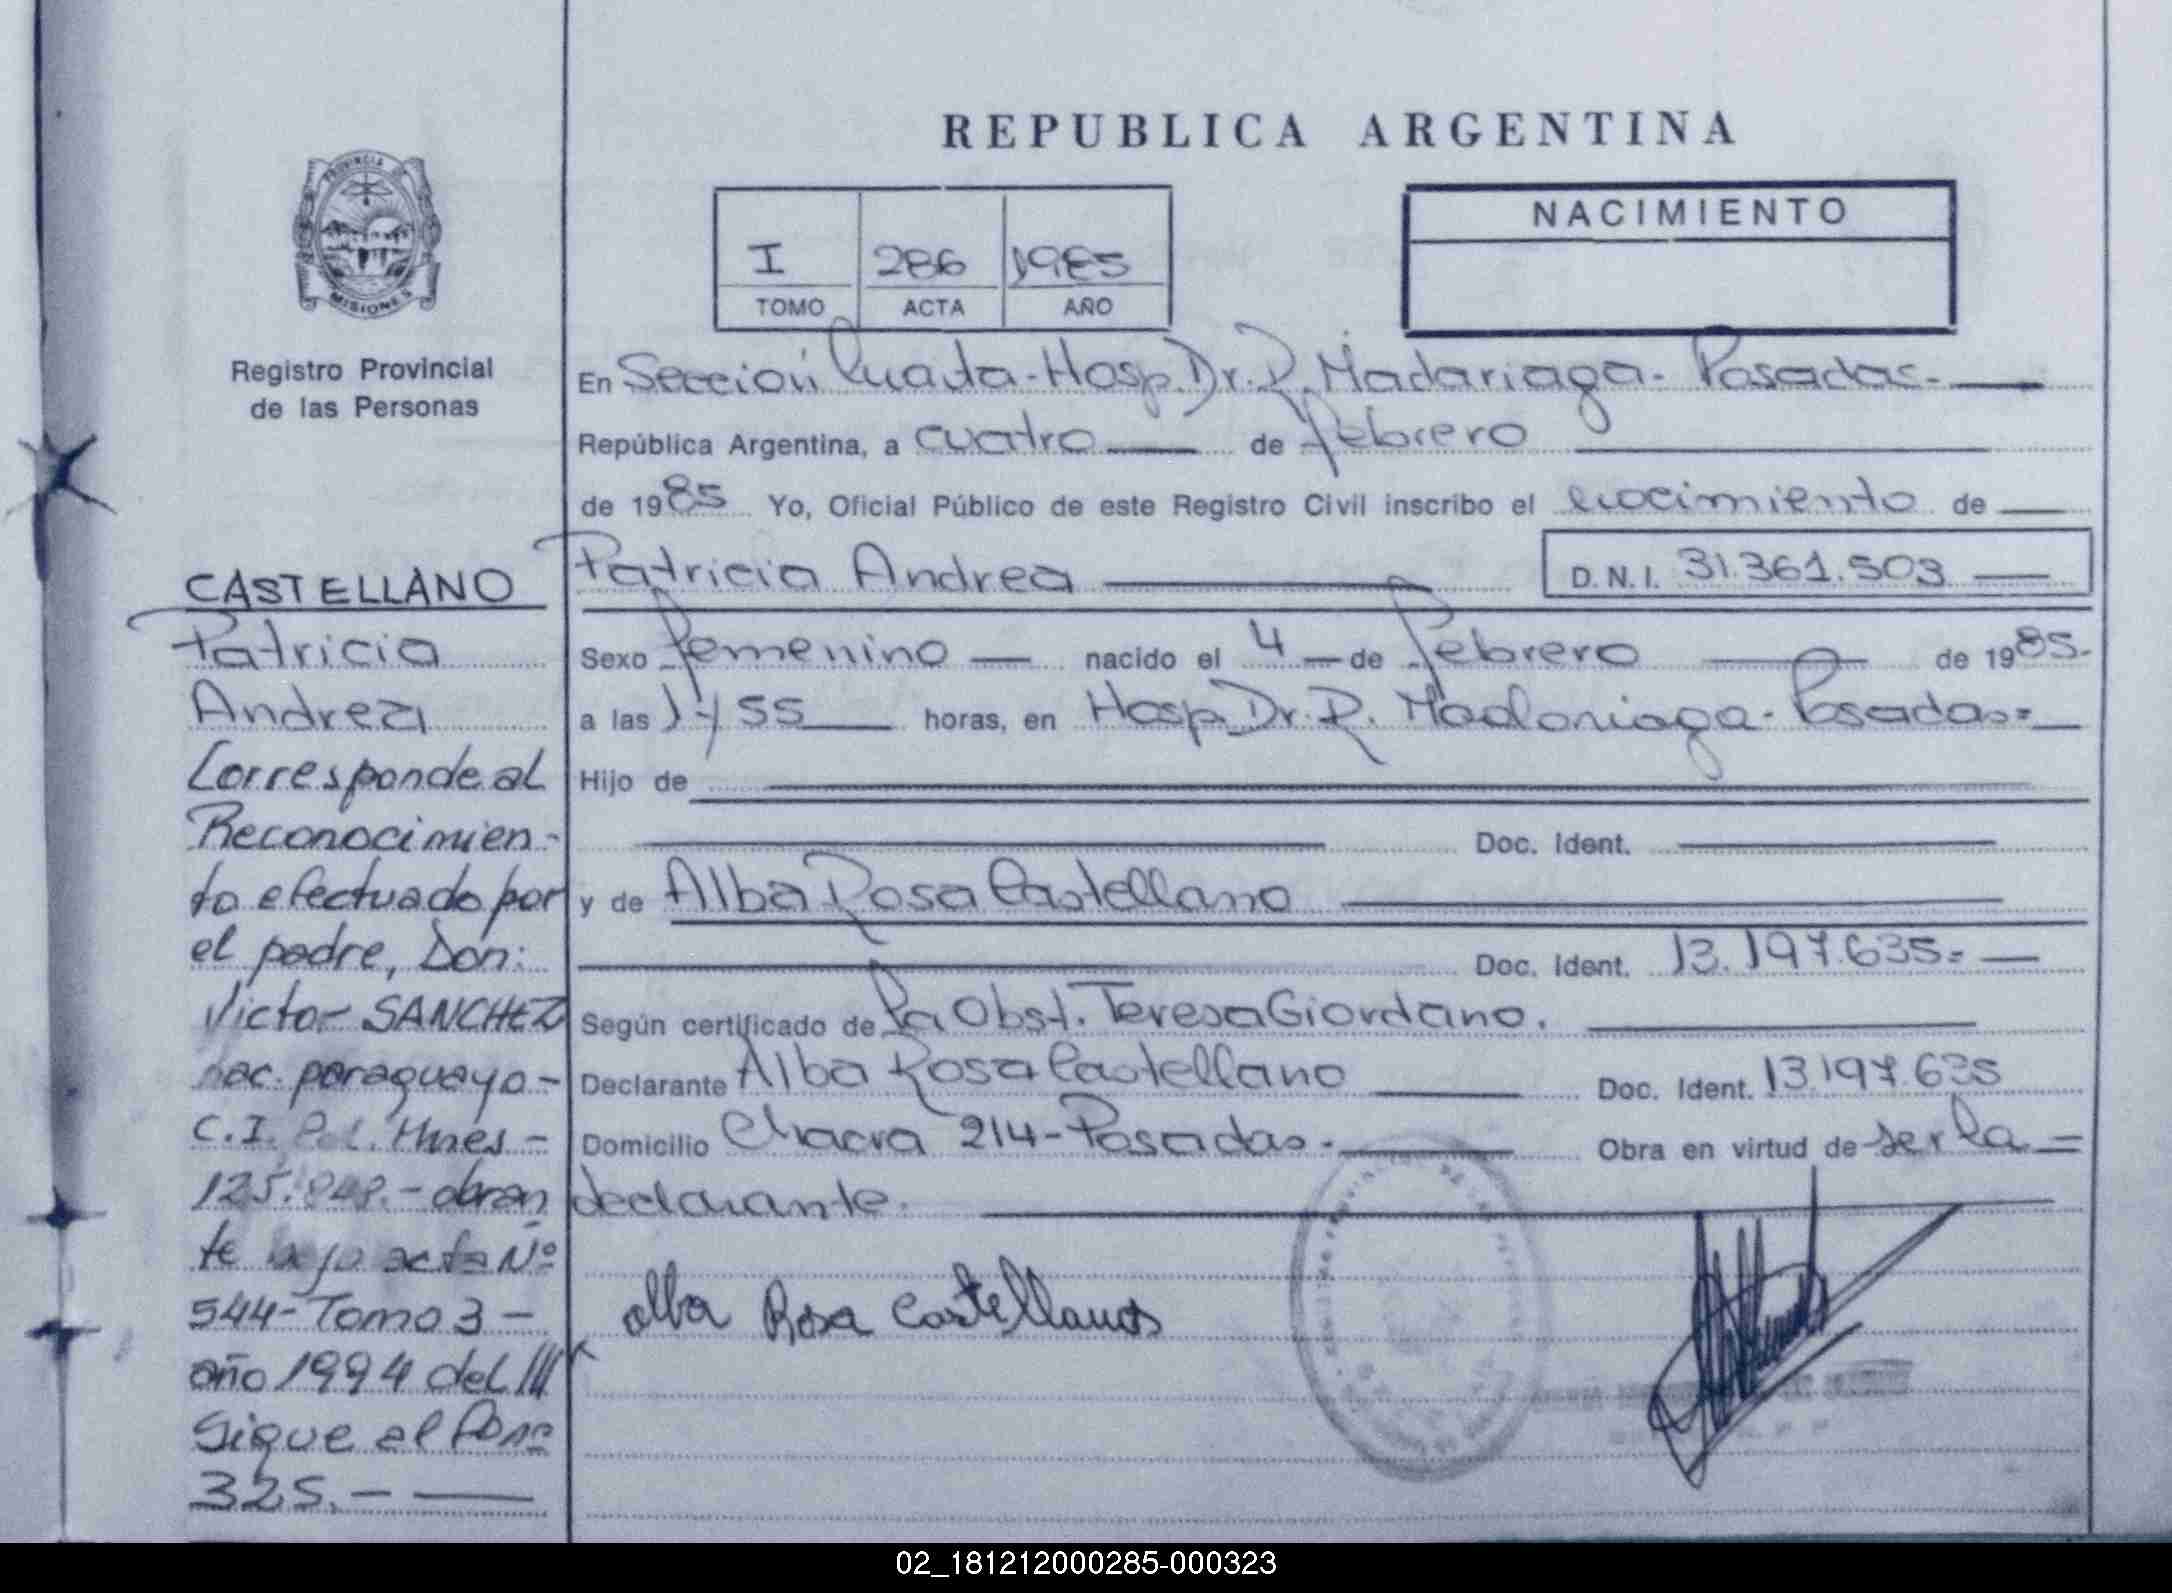 REPUBLICA ARGENTINA
PROVINCIA
MISIONES
Registro Provincial
de las Personas
I 286 1985
TOMO ACTA AÑO
NACIMIENTO
En Sección Cuarta-Hosp. Dr. R. Madariaga- Posadas.
República Argentina, a cuatro de febrero
de 1985 Yo, Oficial Público de este Registro Civil inscribo el nacimiento de
Patricia Andrea D.N.I. 31.361.503
Sexo femenino nacido el 4 de febrero de 1985.
a las 1755 horas, en Hosp. Dr. R. Madariaga- Posadas=
Hijo de
Doc. Ident.
y de Alba Rosa Castellano
Doc. Ident. 13.197.635.=
Según certificado de la Obst. Teresa Giordano.
Declarante Alba Rosa Castellano Doc. Ident. 13.197.635
Domicilio Chacra 214-Posadas. Obra en virtud de ser la =
declarante.
alba Rosa Castellanos
CASTELLANO
Patricia
Andrea
Corresponde al
Reconocimien-
to efectuado por
el padre, Don:
Victor SANCHEZ
nac. paraguayo-
C.I. Pol. Mnes-
125. .- obran
te bajo acta Nº
544-Tomo 3-
año 1994 del III
Sigue al
325.-
02_181212000285-000323